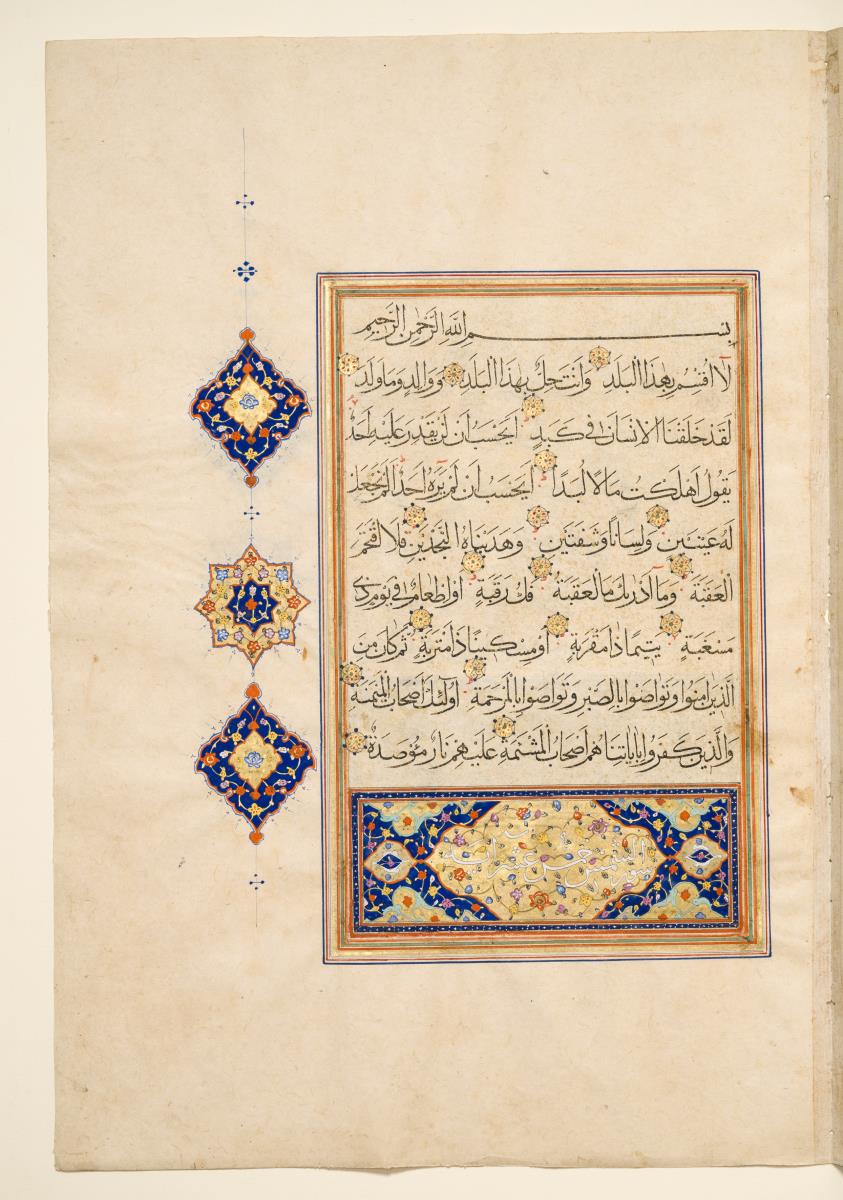 بِسْمِ اللَّهِ الرَّحْمٰنِ الرَّحِيمِ
لَا أُقْسِمُ بِهٰذَا الْبَلَدِ وَأَنْتَ حِلٌّ بِهٰذَا الْبَلَدِ وَوَالِدٍ وَمَا وَلَدَ
لَقَدْ خَلَقْنَا الْإِنْسَانَ فِي كَبَدٍ أَيَحْسَبُ أَنْ لَنْ يَقْدِرَ عَلَيْهِ أَحَدٌ
يَقُولُ أَهْلَكْتُ مَالًا لُبَدًا أَيَحْسَبُ أَنْ لَمْ يَرَهُ أَحَدٌ أَلَمْ نَجْعَلْ
لَهُ عَيْنَيْنِ وَلِسَانًا وَشَفَتَيْنِ وَهَدَيْنَاهُ النَّجْدَيْنِ فَلَا اقْتَحَمَ
الْعَقَبَةَ وَمَا أَدْرٰىكَ مَا الْعَقَبَةُ فَكُّ رَقَبَةٍ أَوْ إِطْعَامٌ فِي يَوْمٍ ذِي
مَسْغَبَةٍ يَتِيمًا ذَا مَقْرَبَةٍ أَوْ مِسْكِينًا ذَا مَتْرَبَةٍ ثُمَّ كَانَ مِنَ
الَّذِينَ آمَنُوا وَتَوَاصَوْا بِالصَّبْرِ وَتَوَاصَوْا بِالْمَرْحَمَةِ أُولٰئِكَ أَصْحَابُ الْمَيْمَنَةِ
وَالَّذِينَ كَفَرُوا بِآيَاتِنَا هُمْ أَصْحَابُ الْمَشْئَمَةِ عَلَيْهِمْ نَارٌ مُؤْصَدَةٌ
سورة الشمس خمس عشرة اية